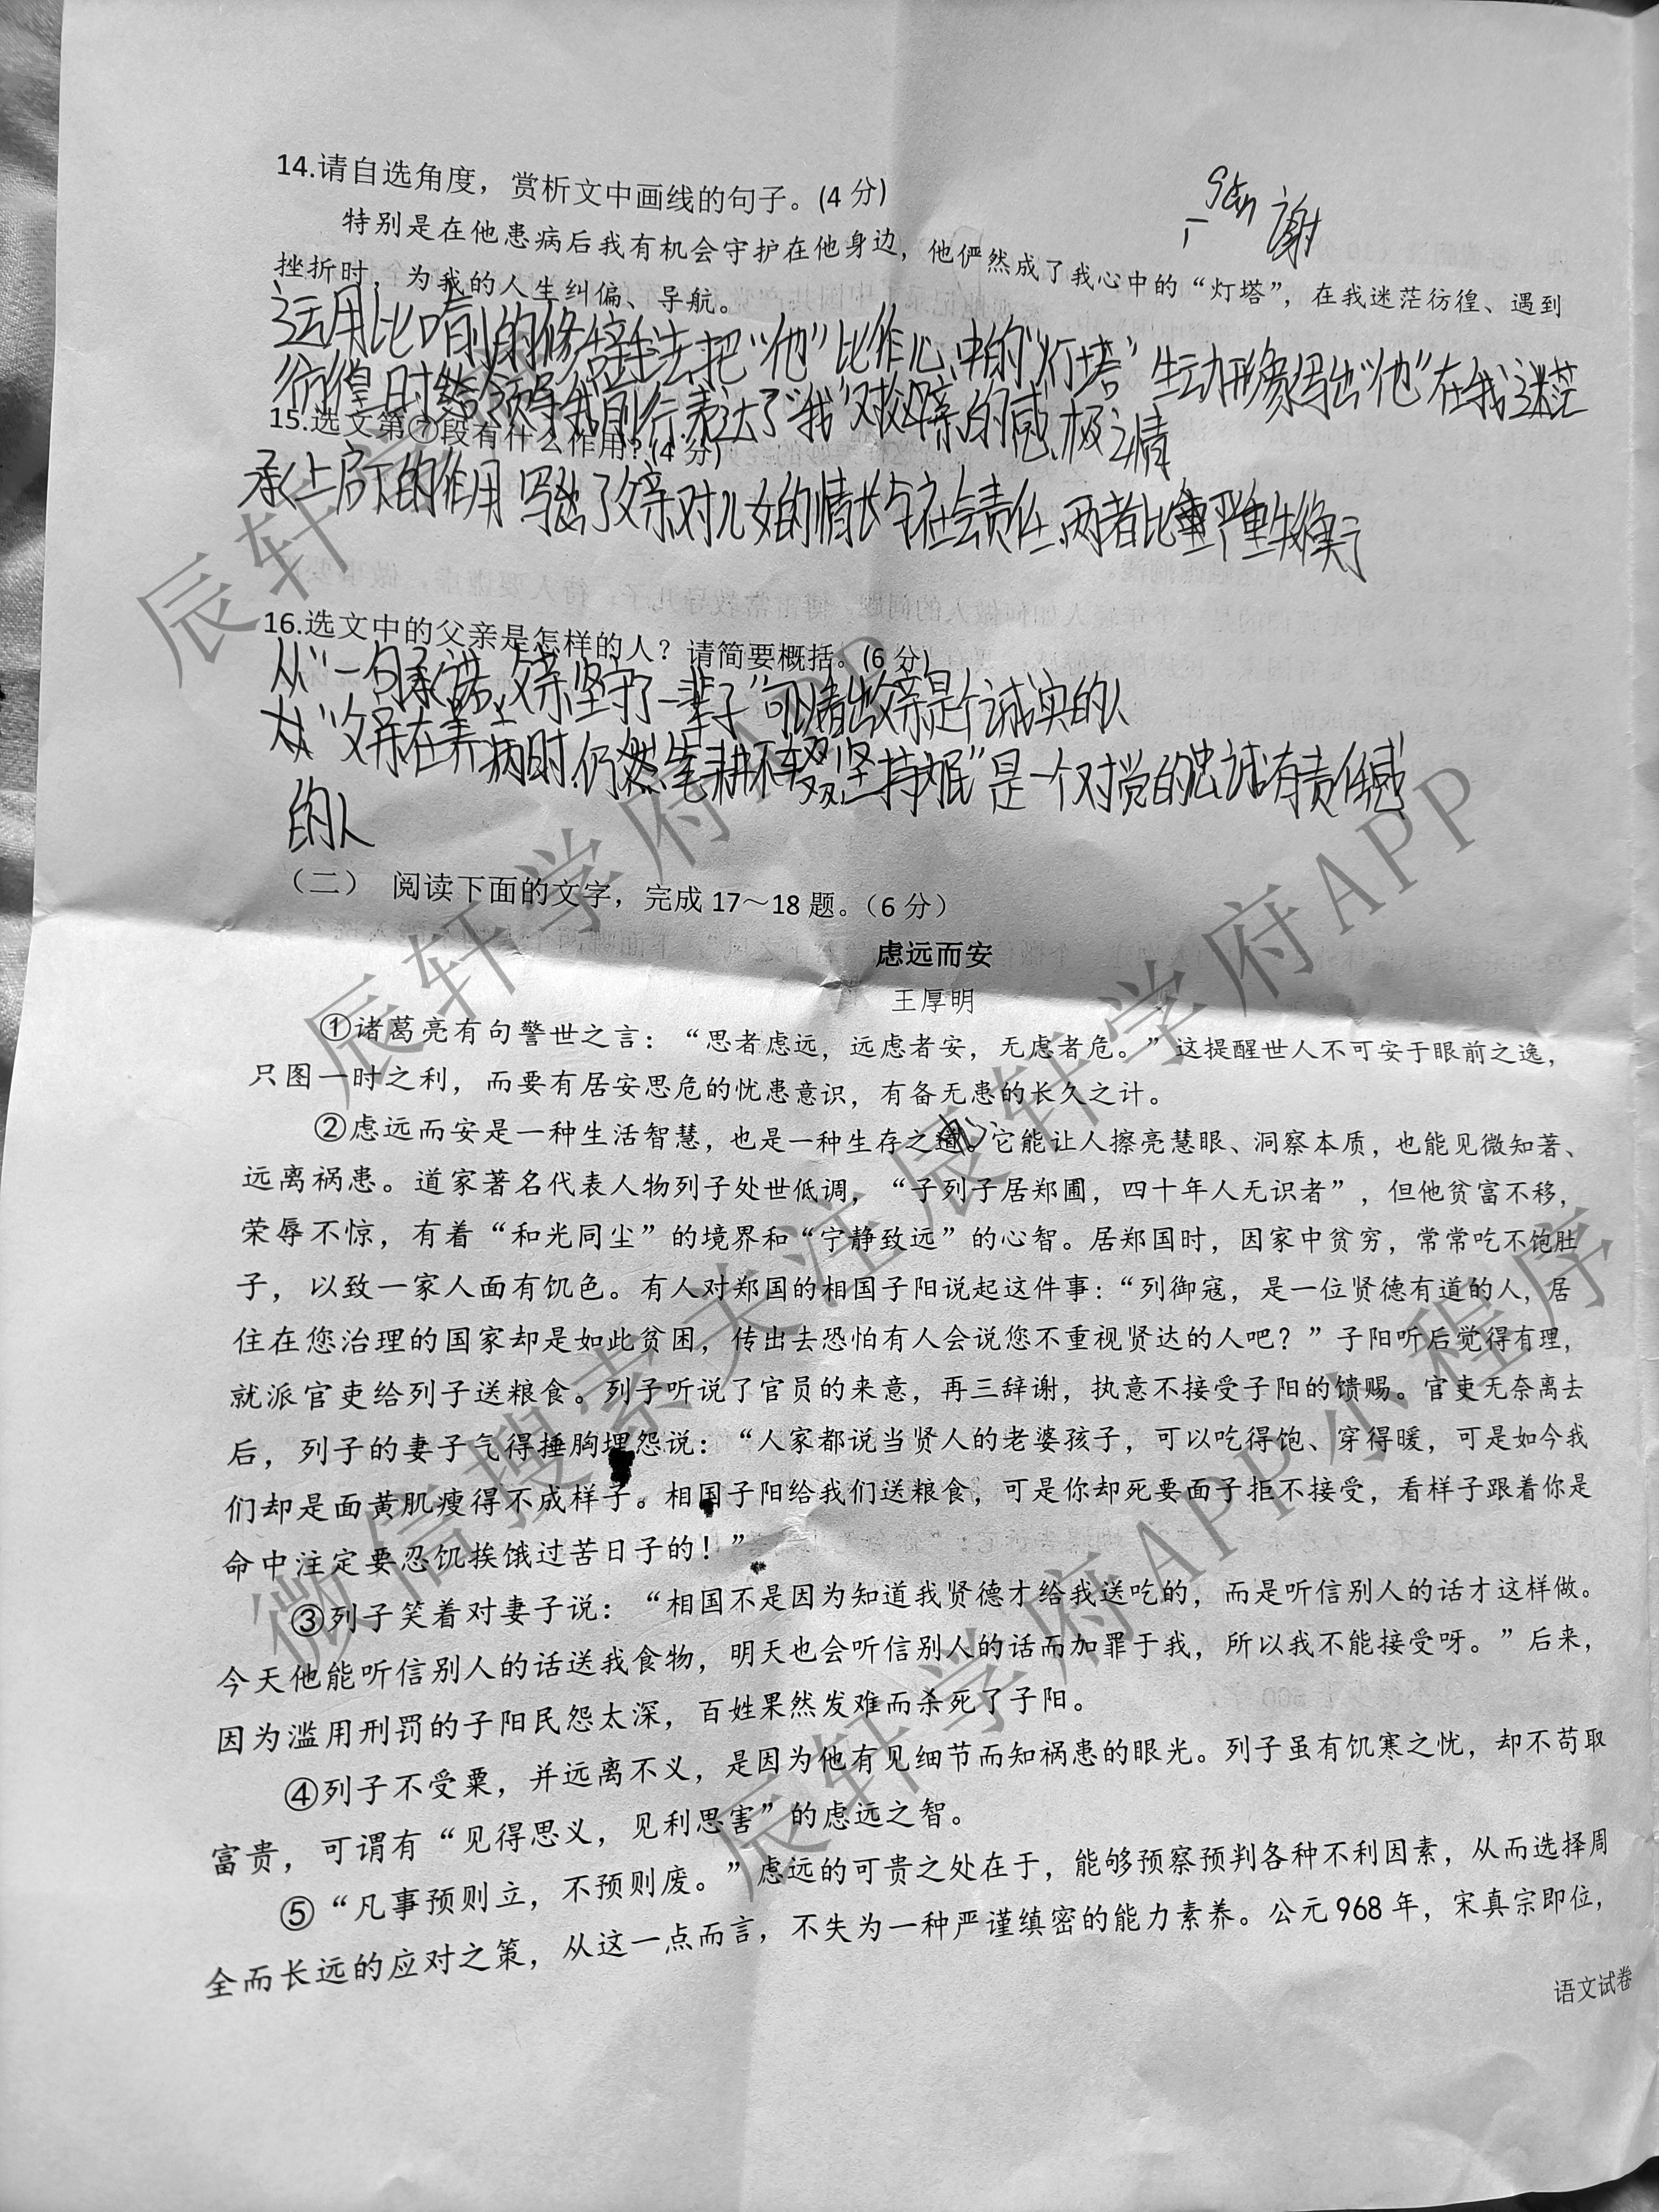 14.请自选角度，赏析文中画线的句子。(4分)
谢
特别是在他患病后我有机会守护在他身边，他俨然成了我心中的“灯塔”，在我迷茫彷徨、遇到
挫折时，为我的人生纠偏、导航。
运用比喻的修辞手法,把“他”比作心中的“灯塔”生动形象写出“他”在我迷茫
彷徨时给领导我前行.表达了“我”对父亲的感极之情
15.选文第⑦段有什么作用?(4分)
承上启下的作用 写出了父亲对儿女的情长与社会责任,两者比重严重失衡
16.选文中的父亲是怎样的人？请简要概括。(6分)
从“一句承诺,父亲坚守了一辈子”可以看出父亲是个诚实的人
从“父亲在养病时.仍然笔耕不辍,坚持不懈”是一个对党的忠诚有责任感
的人
（二） 阅读下面的文字，完成17～18题。（6分）
虑远而安
王厚明
①诸葛亮有句警世之言：“思者虑远，远虑者安，无虑者危。”这提醒世人不可安于眼前之逸，
只图一时之利，而要有居安思危的忧患意识，有备无患的长久之计。
②虑远而安是一种生活智慧，也是一种生存之道。它能让人擦亮慧眼、洞察本质，也能见微知著、
远离祸患。道家著名代表人物列子处世低调，“子列子居郑圃，四十年人无识者”，但他贫富不移，
荣辱不惊，有着“和光同尘”的境界和“宁静致远”的心智。居郑国时，因家中贫穷，常常吃不饱肚
子，以致一家人面有饥色。有人对郑国的相国子阳说起这件事：“列御寇，是一位贤德有道的人，居
住在您治理的国家却是如此贫困，传出去恐怕有人会说您不重视贤达的人吧？”子阳听后觉得有理，
就派官吏给列子送粮食。列子听说了官员的来意，再三辞谢，执意不接受子阳的馈赐。官吏无奈离去
后，列子的妻子气得捶胸埋怨说：“人家都说当贤人的老婆孩子，可以吃得饱、穿得暖，可是如今我
们却是面黄肌瘦得不成样子。相国子阳给我们送粮食，可是你却死要面子拒不接受，看样子跟着你是
命中注定要忍饥挨饿过苦日子的！”
③列子笑着对妻子说：“相国不是因为知道我贤德才给我送吃的，而是听信别人的话才这样做。
今天他能听信别人的话送我食物，明天也会听信别人的话而加罪于我，所以我不能接受呀。”后来，
因为滥用刑罚的子阳民怨太深，百姓果然发难而杀死了子阳。
④列子不受粟，并远离不义，是因为他有见细节而知祸患的眼光。列子虽有饥寒之忧，却不苟取
富贵，可谓有“见得思义，见利思害”的虑远之智。
⑤“凡事预则立，不预则废。”虑远的可贵之处在于，能够预察预判各种不利因素，从而选择周
全而长远的应对之策，从这一点而言，不失为一种严谨缜密的能力素养。公元968年，宋真宗即位，
语文试卷
微信搜索关注辰轩学府APP小程序
辰轩学府APP
辰轩学府APP
辰轩学府APP